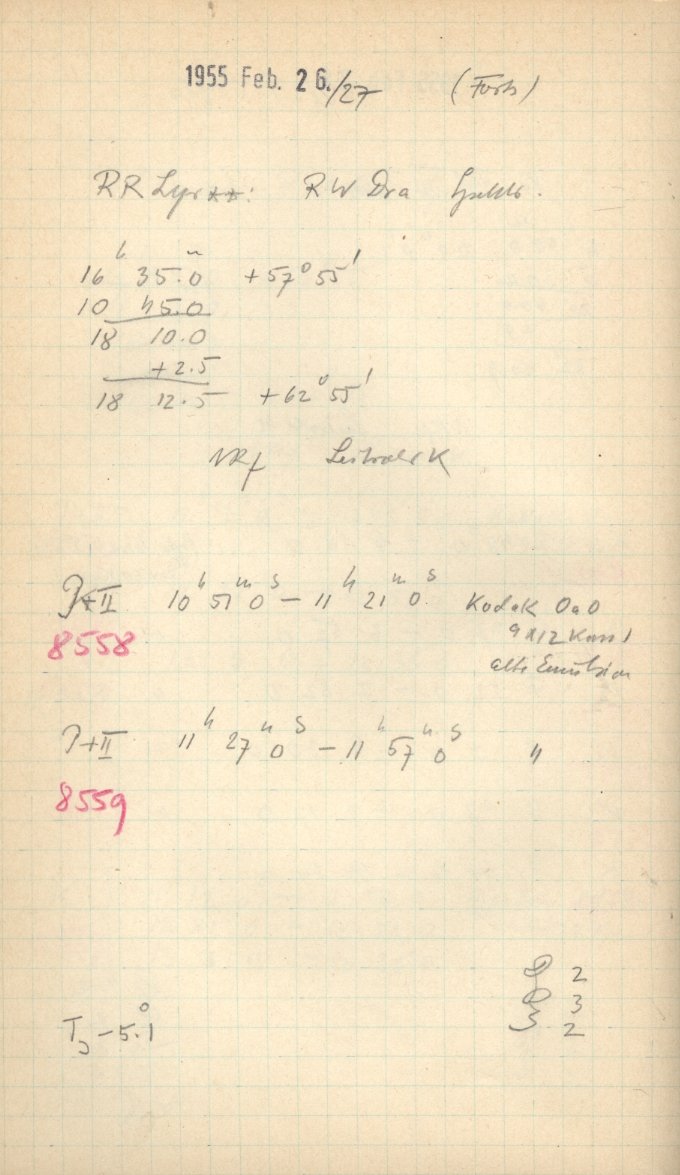 1955 Feb. 26./27 (Forts)
RR Lyr**: RW Dra
16h 35.0m +57° 55'
10 45.0
18 10.0
+2.5
18 12.5 +62° 55'
Leitstern K
P+II 10h 51m 0s – 11h 21m 0s Kodak OaO
8558 9x12 Kass I
alte Emulsion
P+II 11h 27m 0s – 11h 57m 0s "
8559
2
3
T – 5.1° 3 2